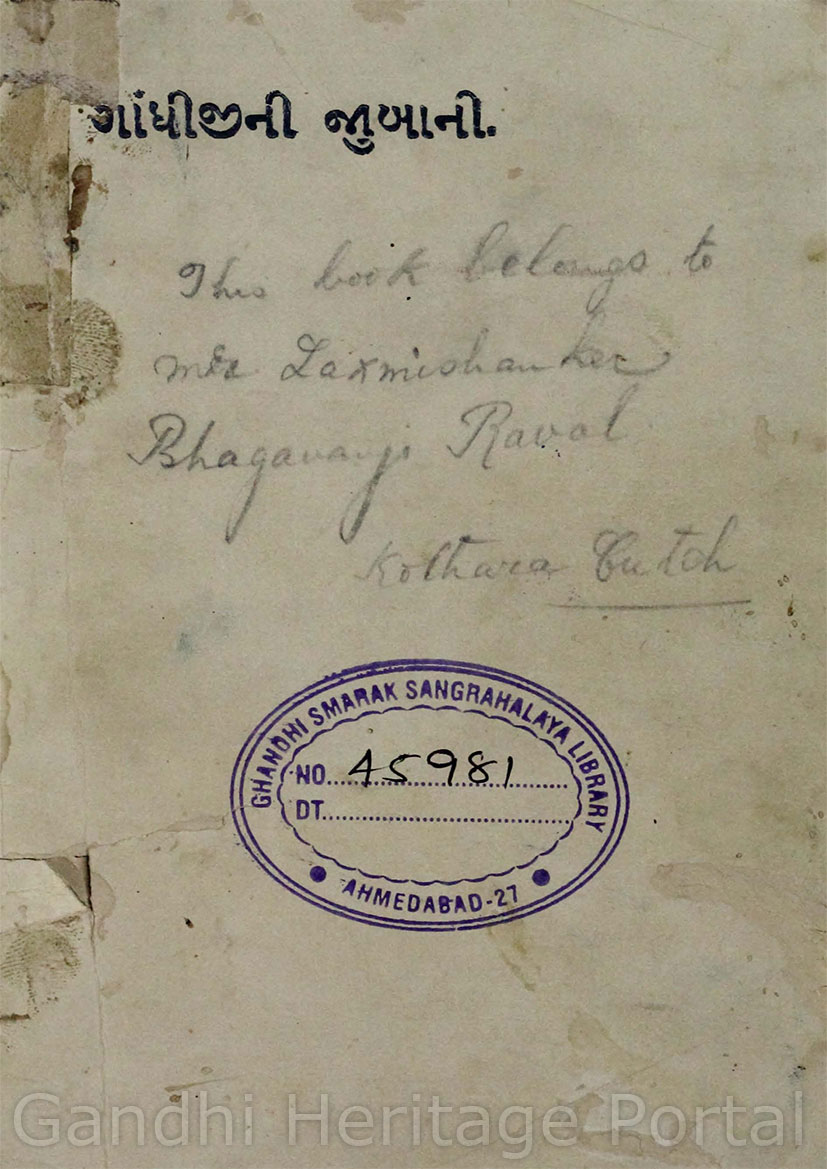 ગાંધીજીની જુબાની.
This book belongs to
Mr Laxmishanker
Bhagavanji Raval
Kothara Cutch
GHANDHI SMARAK SANGRAHALAYA LIBRARY
NO. 45981
DT.
AHMEDABAD-27
Gandhi Heritage Portal